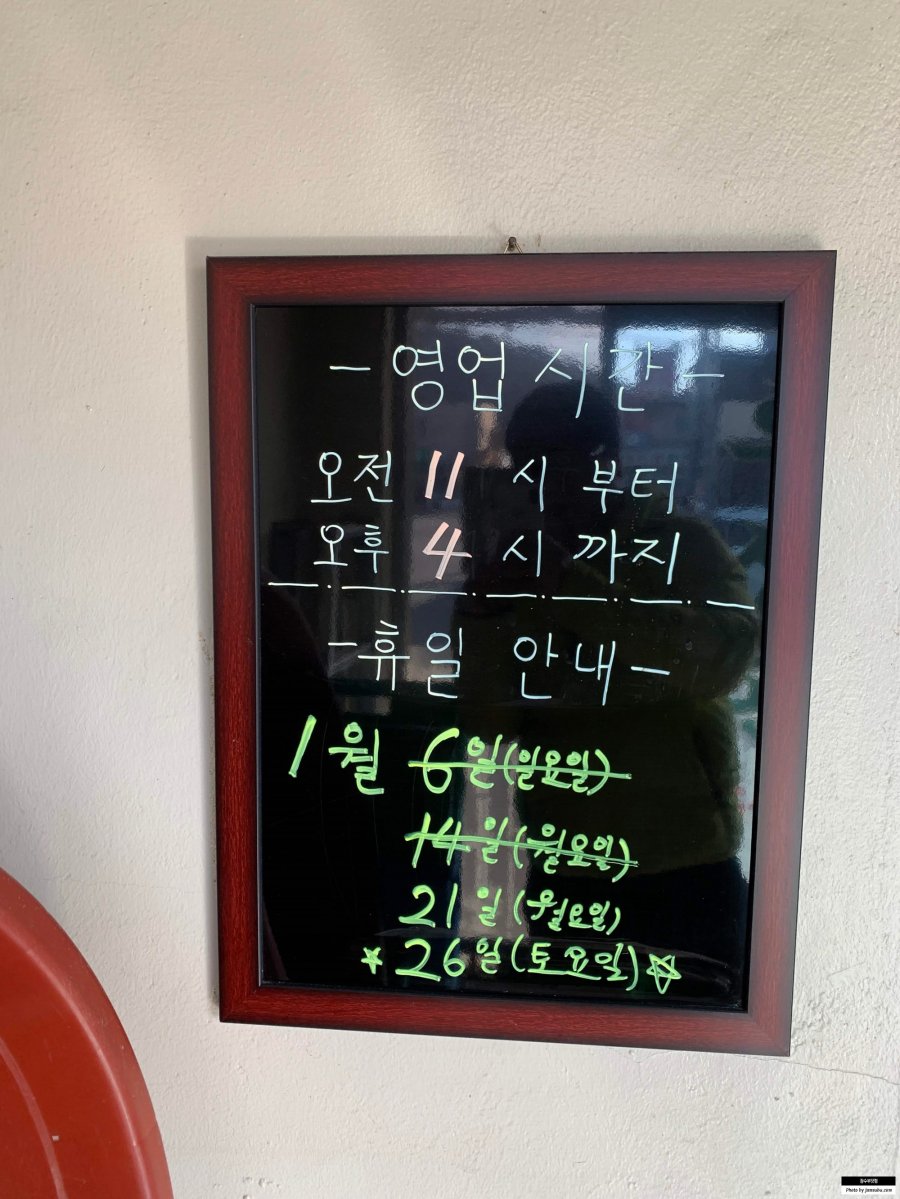 -영업시간-
오전 11 시 부터
오후 4 시 까지
-휴일 안내-
1월 6일(일요일)
14일(월요일)
21일(월요일)
☆26일(토요일)☆
Photo by jamsubu.com